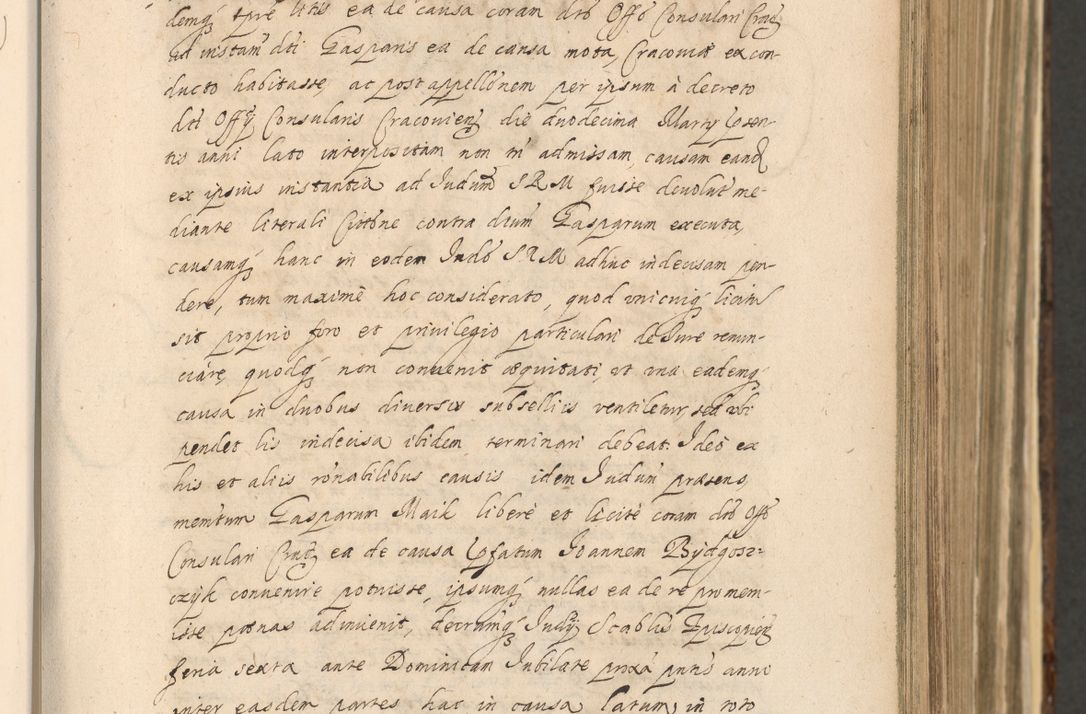 demq́ tpre litis ea de causa coram dt̃o Offõ Consulari Crac̃
ad instam̃ dti Gasparis ea de causa mota, Cracoviæ ex con-
ducto habitasse, ac post appellõnem per ipsum à decreto
dti Offÿ Consularis Cracovien̄ die duodecima Martÿ præsen-
tis anni lato interpositam non tñ admissam, causam eand̃
ex ipsius instantia ad Judum̃ SRM fuisse devolut̃ me-
diante literali Cittõne contra dictum Gasparum executa,
causamq́ hanc in eodem Judõ SRM adhuc indecisam pen-
dere, tum maximè hoc considerato, quod unicuiq́ licitũ
sit proprio foro et privilegio particulari de Jure renun-
ciare, quodq́ non convenit æquitati, ut una eademq́
causa in duobus diversis subselliis ventiletur, sed ubi
pendet lis indecisa ibidem terminari debeat. Ideò ex
his et aliis rõnabilibus causis idem Judum̃ præsens
memtum̃ Gasparum Maik liberè et licitè coram dtõ Offõ
Consulari Crac̃ ea de causa præfatum Joannem Bydgosz-
czyk convenire potuisse, ipsumq́ nullas ea de re promem-
isse pœnas adinvenit, decrumq́ Judÿ Scablis Episcopien̄
feria sexta ante Dominicam Jubilate proxã pntis anni
inter easdem partes hac in causa latum, in toto